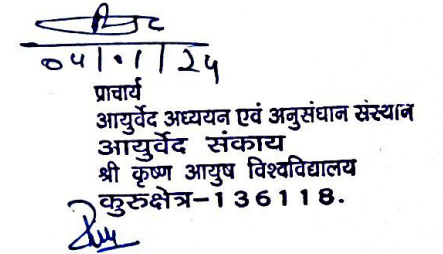 04/01/24
प्राचार्य
आयुर्वेद अध्ययन एवं अनुसंधान संस्थान
आयुर्वेद संकाय
श्री कृष्ण आयुष विश्वविद्यालय
कुरुक्षेत्र-136118.